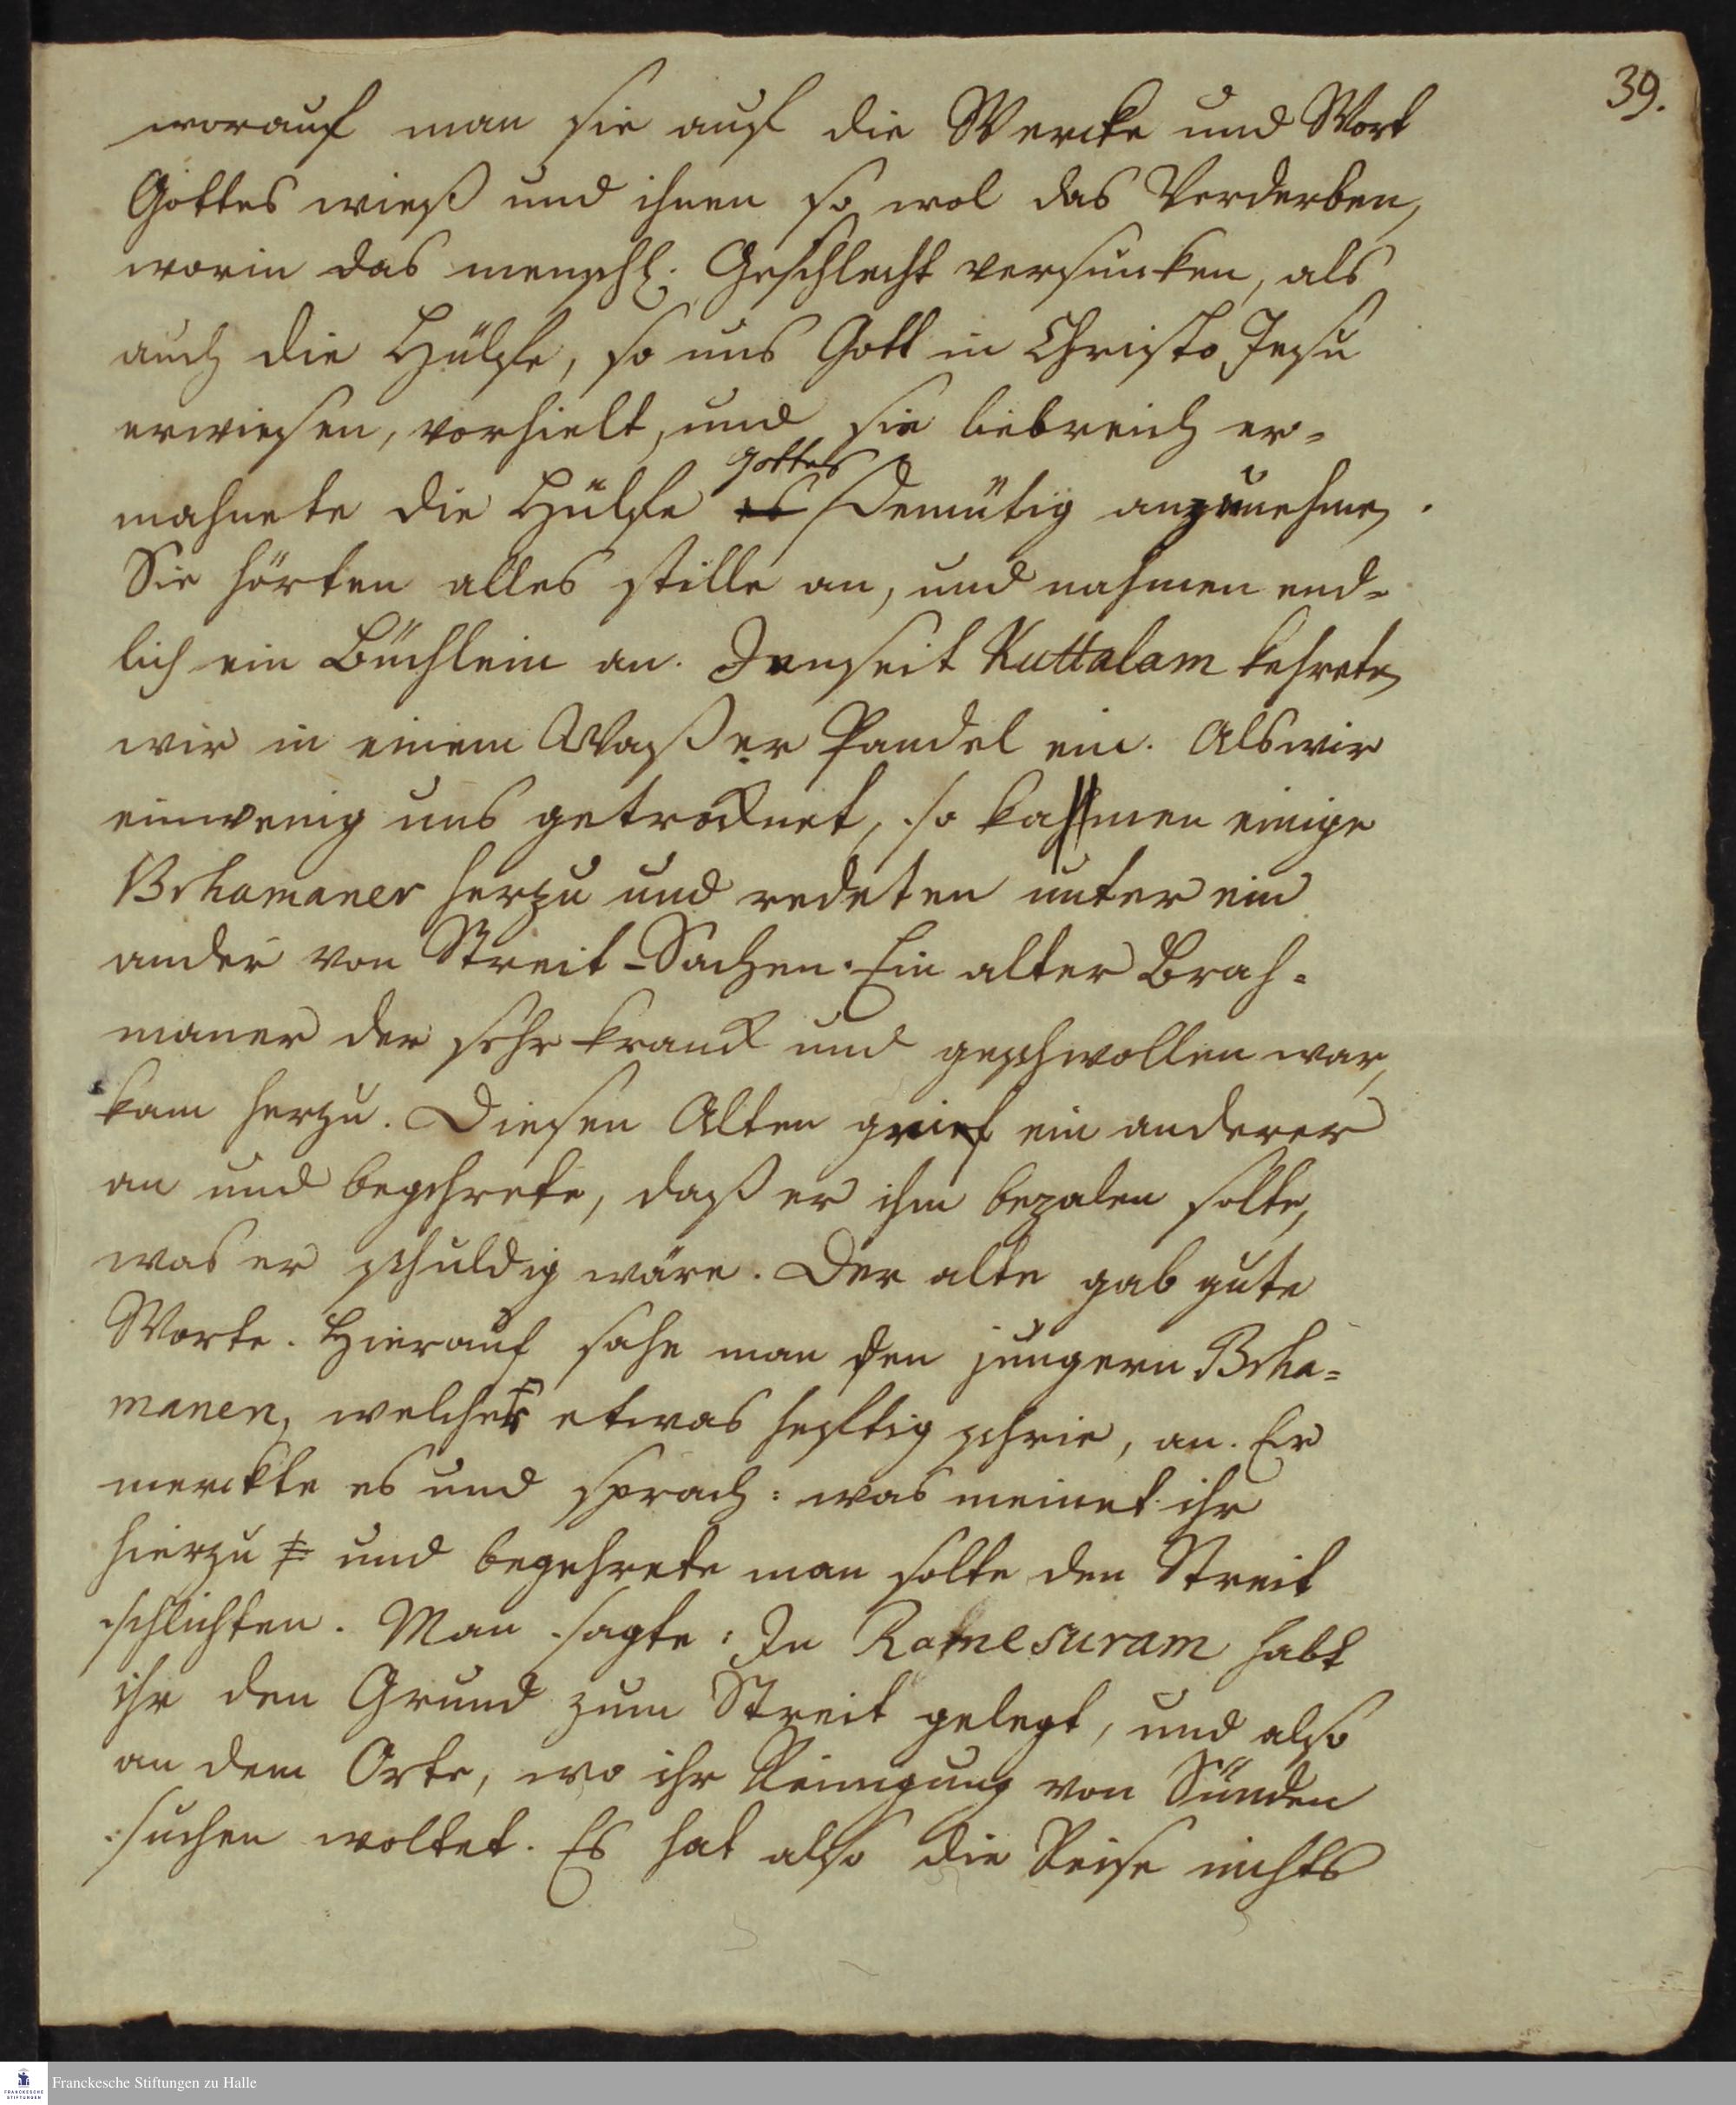 39.
worauf man sie auf die Wercke und Wort
Gottes wieß und ihnen so wol das Verderben,
worin das menschl. Geschlecht versuncken, als
auch die Hülfe, so uns Gott in Christo Jesu
erwiesen, vorhielt, und sie liebreich er-
Gottes
mahnete die Hülfe es demütig anzunehmen.
Sie hörten alles stille an, und nahmen end-
lich ein Büchlein an. Jenseit Kuttalam kehreten
wir in einem Waßer Pandel ein. Als wir
ein wenig uns getrocknet, so kamen einige
Brhamaner herzu und redeten unter ein
ander von Streit-Sachen. Ein alter Brah-
maner der sehr kranck und geschwollen war,
kam herzu. Diesen Alten grief ein anderer
an und begehrete, daß er ihm bezalen solte,
was er schuldig wäre. Der alte gab gute
Worte. Hierauf sahe man den jungern Brha-
manen, welcher etwas heftig schrie, an. Er
merckte es und sprach: was meinet ihr
hierzu und begehrete man solte den Streit
schlichten. Man sagte: In Ramesuram habt
ihr den Grund zum Streit gelegt, und also
an dem Orte, wo ihr Reinigung von Sünden
suchen woltet. Es hat also die Reise nichts
Franckesche Stiftungen zu Halle
FRANCKESCHE
STIFTUNGEN